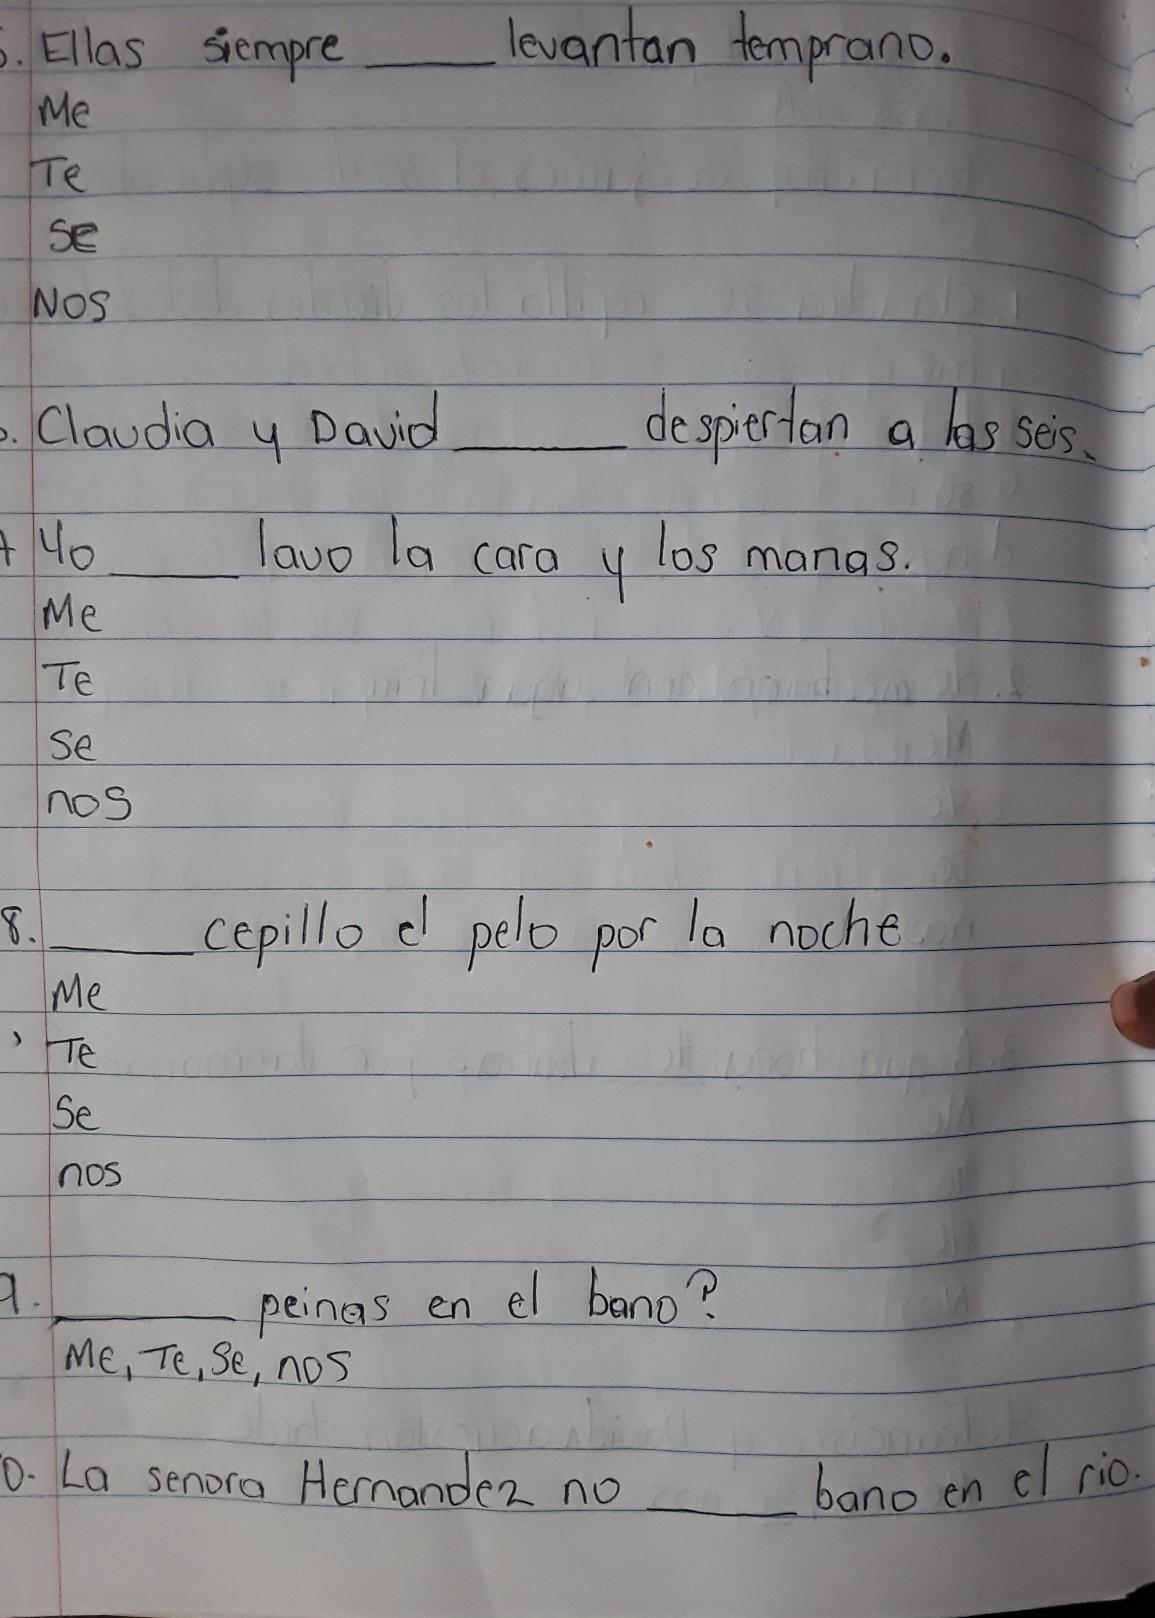 5. Ellas siempre ____ levantan temprano.
Me
Te
Se
Nos
6. Claudia y David ____ despiertan a las seis.
7 Yo ____ lavo la cara y los manas.
Me
Te
Se
nos
8. ____ cepillo el pelo por la noche
Me
Te
Se
nos
9. ____ peinas en el bano?
Me, Te, Se, nos
10. La senora Hernandez no ____ bano en el rio.